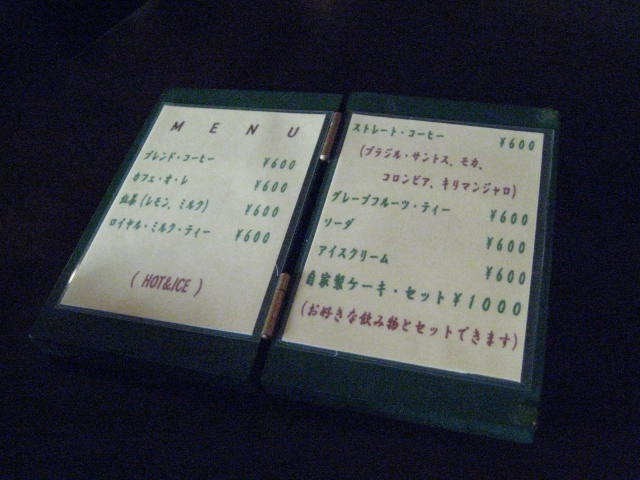 MENU
ブレンド・コーヒー ¥600
カフェ・オ・レ ¥600
紅茶(レモン、ミルク) ¥600
ロイヤル・ミルク・ティー ¥600
(HOT&ICE)
ストレート・コーヒー ¥600
(ブラジル・サントス、モカ、
コロンビア、キリマンジャロ)
グレープフルーツ・ティー ¥600
ソーダ ¥600
アイスクリーム ¥600
自家製ケーキ・セット ¥1000
(お好きな飲み物とセットできます)